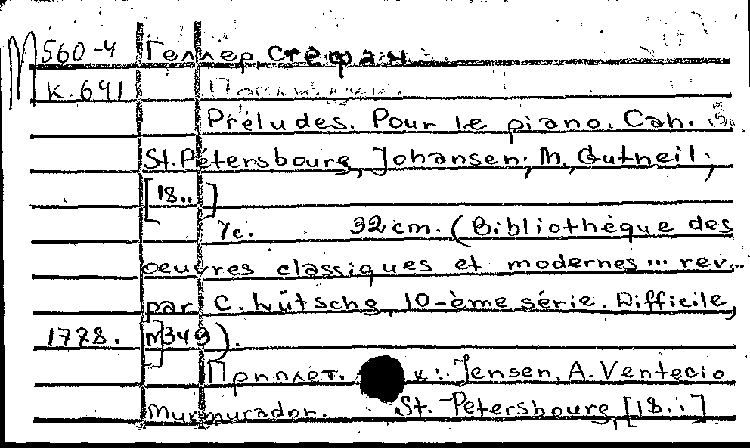 М560-4 Геллер, Стефан.
к.691
Préludes. Pour le piano. Cah. 3.
St. Pétersbourg, Johansen; M., Gutheil;
[18..]
7с. 32 cm. (Bibliothèque des
oeuvres classiques et modernes... rev...
par C. Lütschg, 10-ème série. Difficile,
1778. N349).
Приплет. к: Jensen, A. Ventecio
Murmurador. St. Petersbourg, [18..]